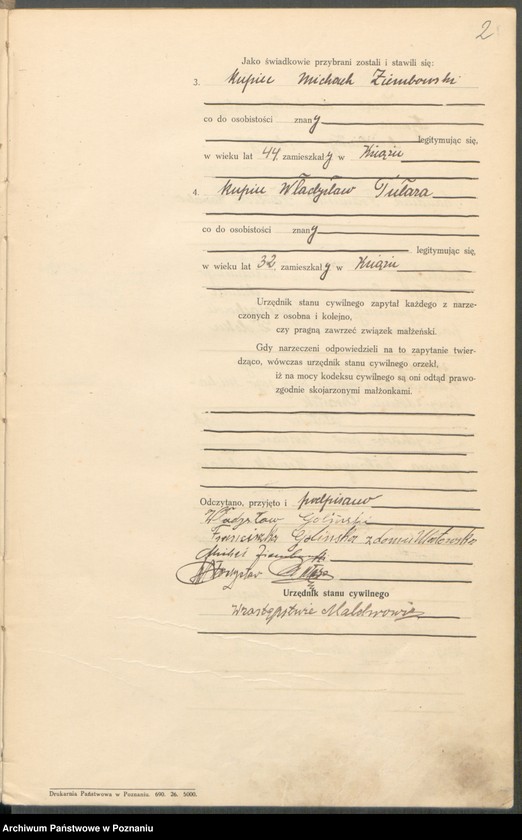 2
Jako świadkowie przybrani zostali i stawili się:
3. Kupiec Michał Ziembowski
co do osobistości znany
legitymując się,
w wieku lat 44, zamieszkały w Książu
4. Kupiec Władysław Tulara
co do osobistości znany
legitymując się,
w wieku lat 32, zamieszkały w Książu
Urzędnik stanu cywilnego zapytał każdego z narze-
czonych z osobna i kolejno,
czy pragną zawrzeć związek małżeński.
Gdy narzeczeni odpowiedzieli na to zapytanie twier-
dząco, wówczas urzędnik stanu cywilnego orzekł,
iż na mocy kodeksu cywilnego są oni odtąd prawo-
zgodnie skojarzonymi małżonkami.
Odczytano, przyjęto i podpisano
Władysław Goliński
Franciszka Golińska z domu
Władysław
Urzędnik stanu cywilnego
W zastępstwie
Drukarnia Państwowa w Poznaniu. 690. 26. 5000.
Archiwum Państwowe w Poznaniu